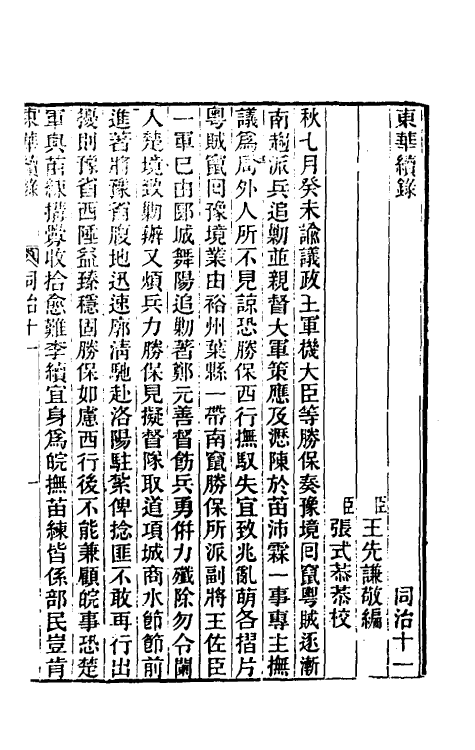 東華續錄
同治十一
臣王先謙敬編
臣張式恭恭校
秋七月癸未諭議政王軍機大臣等勝保奏豫境回竄粵賊逐漸
南趨派兵追勦並親督大軍策應及瀝陳於苗沛霖一事專主撫
議爲局外人所不見諒恐勝保西行撫馭失宜致兆亂萌各摺片
粵賊竄回豫境業由裕州葉縣一帶南竄勝保所派副將王佐臣
一軍已由郾城舞陽追勦著鄭元善督飭兵勇併力殲除勿令闌
人楚境致勦辦又煩兵力勝保見擬督隊取道項城商水節節前
進著將豫省腹地迅速廓淸馳赴洛陽駐紮俾捻匪不敢再行出
擾則豫省西陲益臻穩固勝保如慮西行後不能兼顧皖事恐楚
軍與苗練搆釁收拾愈難李續宜身爲皖撫苗練皆係部民豈肯
東華續錄
同治十一
一